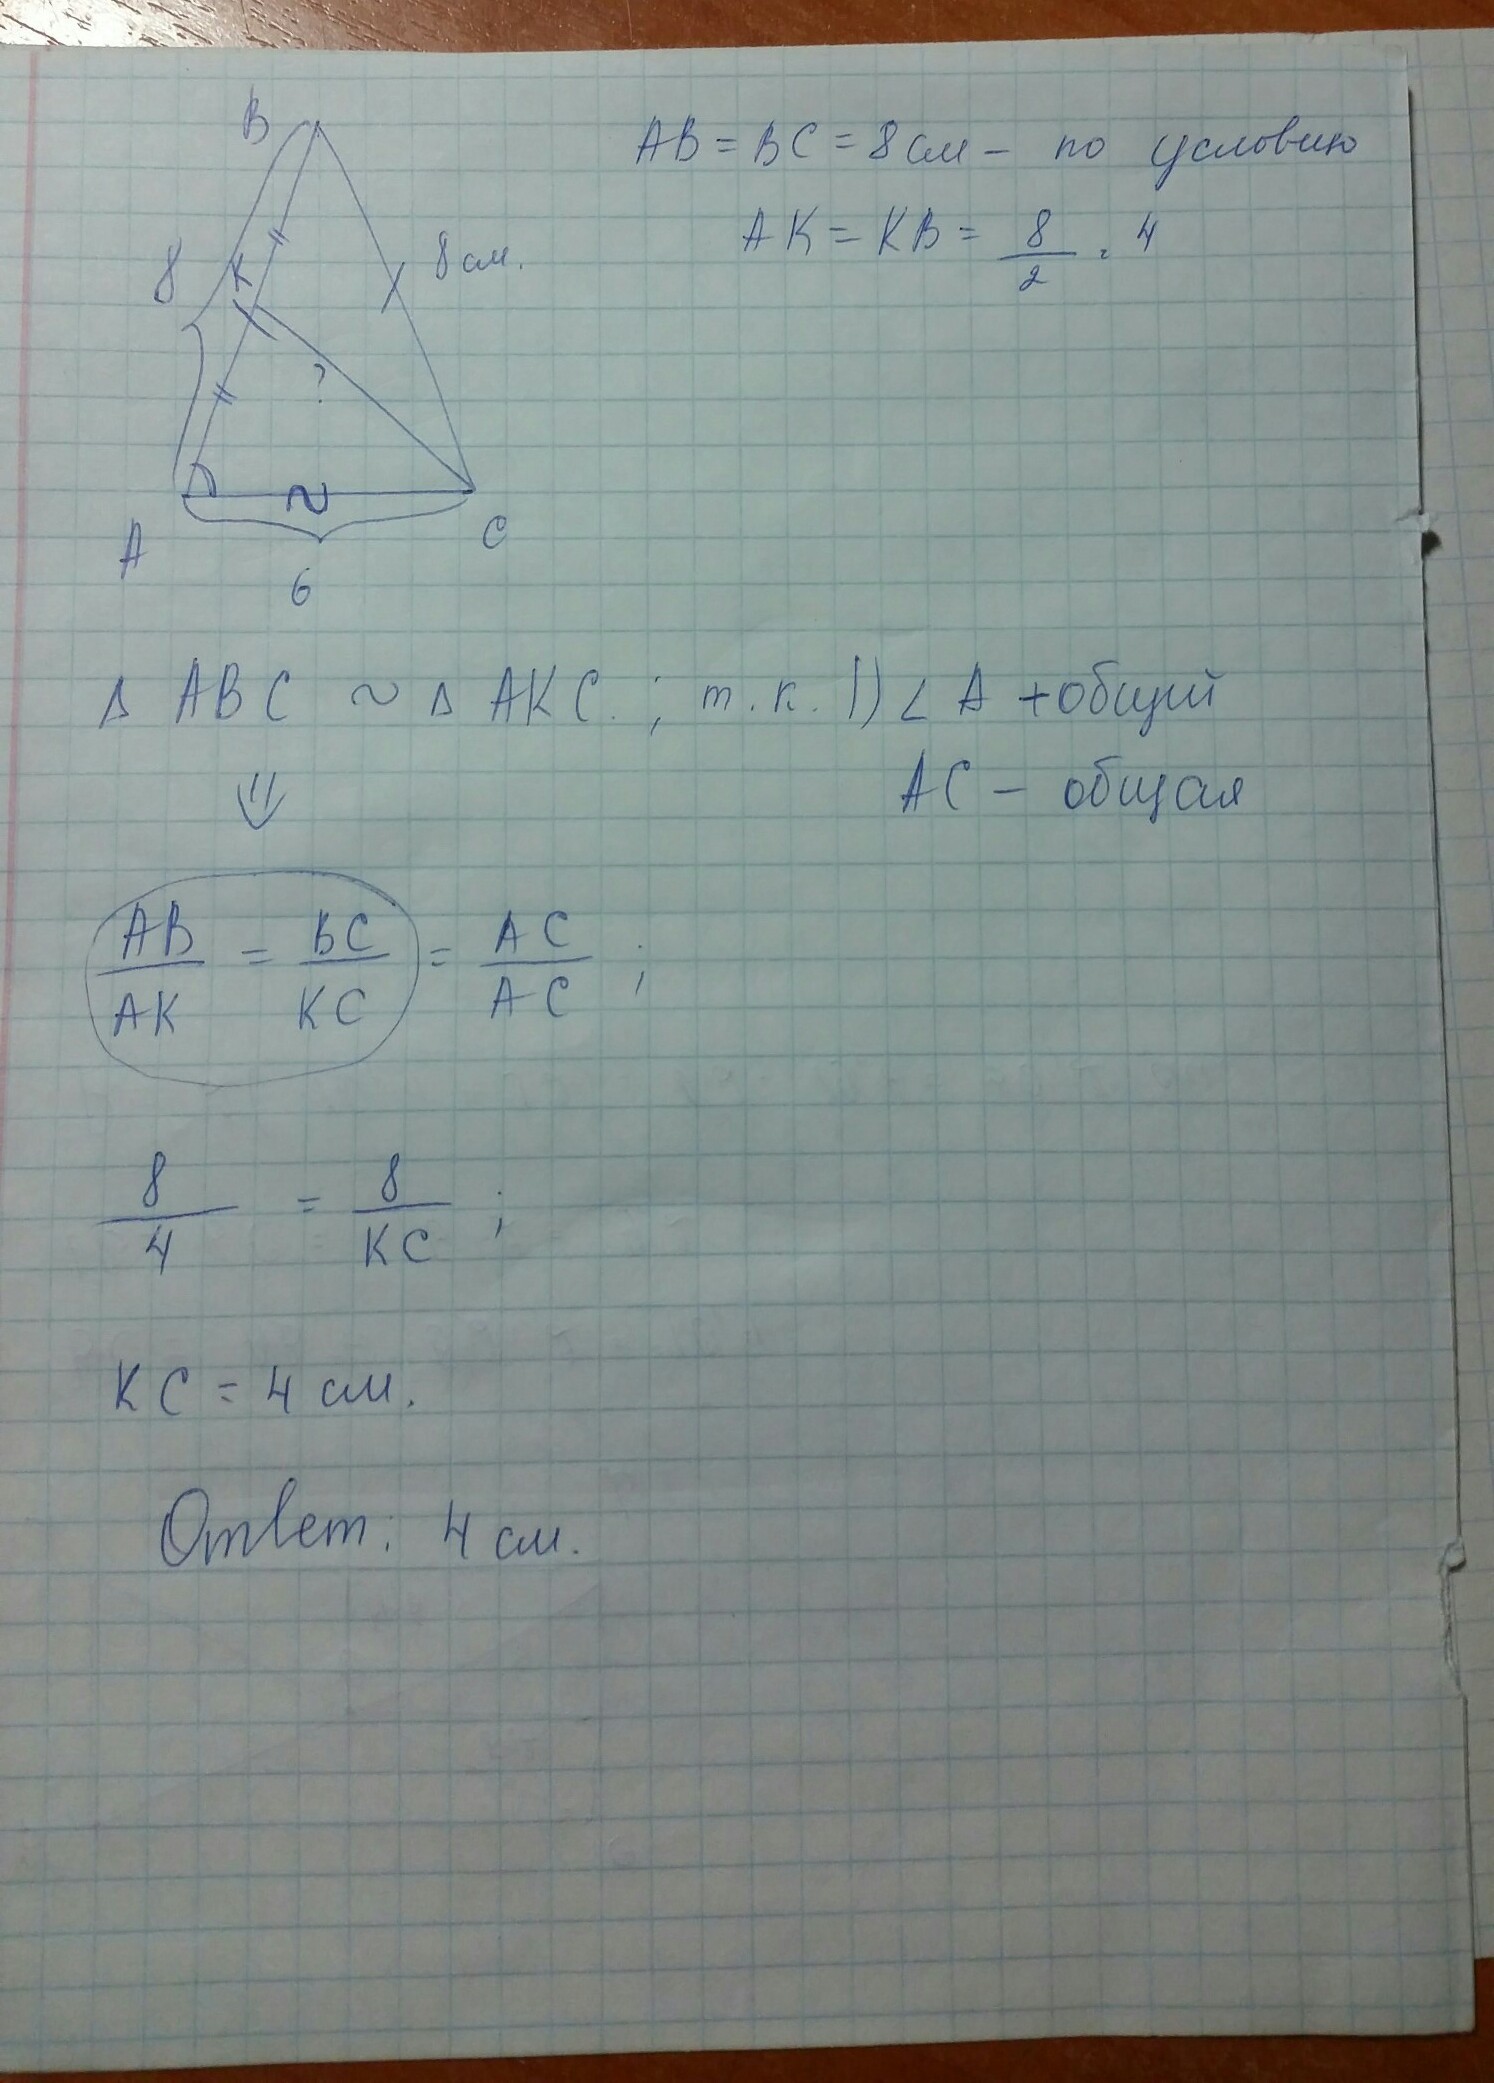 B
AB = BC = 8 см – по условию
AK = KB = 8/2 = 4
8
K
8 см.
?
~
A
C
6
Δ ABC ~ Δ AKC. ; т.к. 1) ∠ A + общий
AC – общая
⇓
AB/AK = BC/KC = AC/AC ;
8/4 = 8/KC ;
KC = 4 см.
Ответ: 4 см.